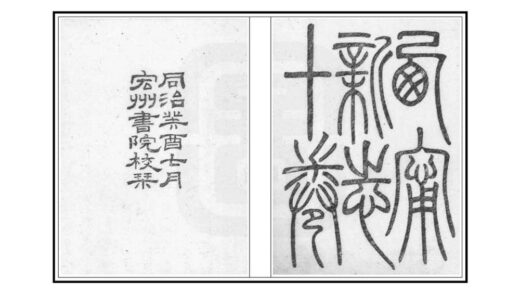 西甯
新志
十卷
同治癸酉七月
宏州書院校栞